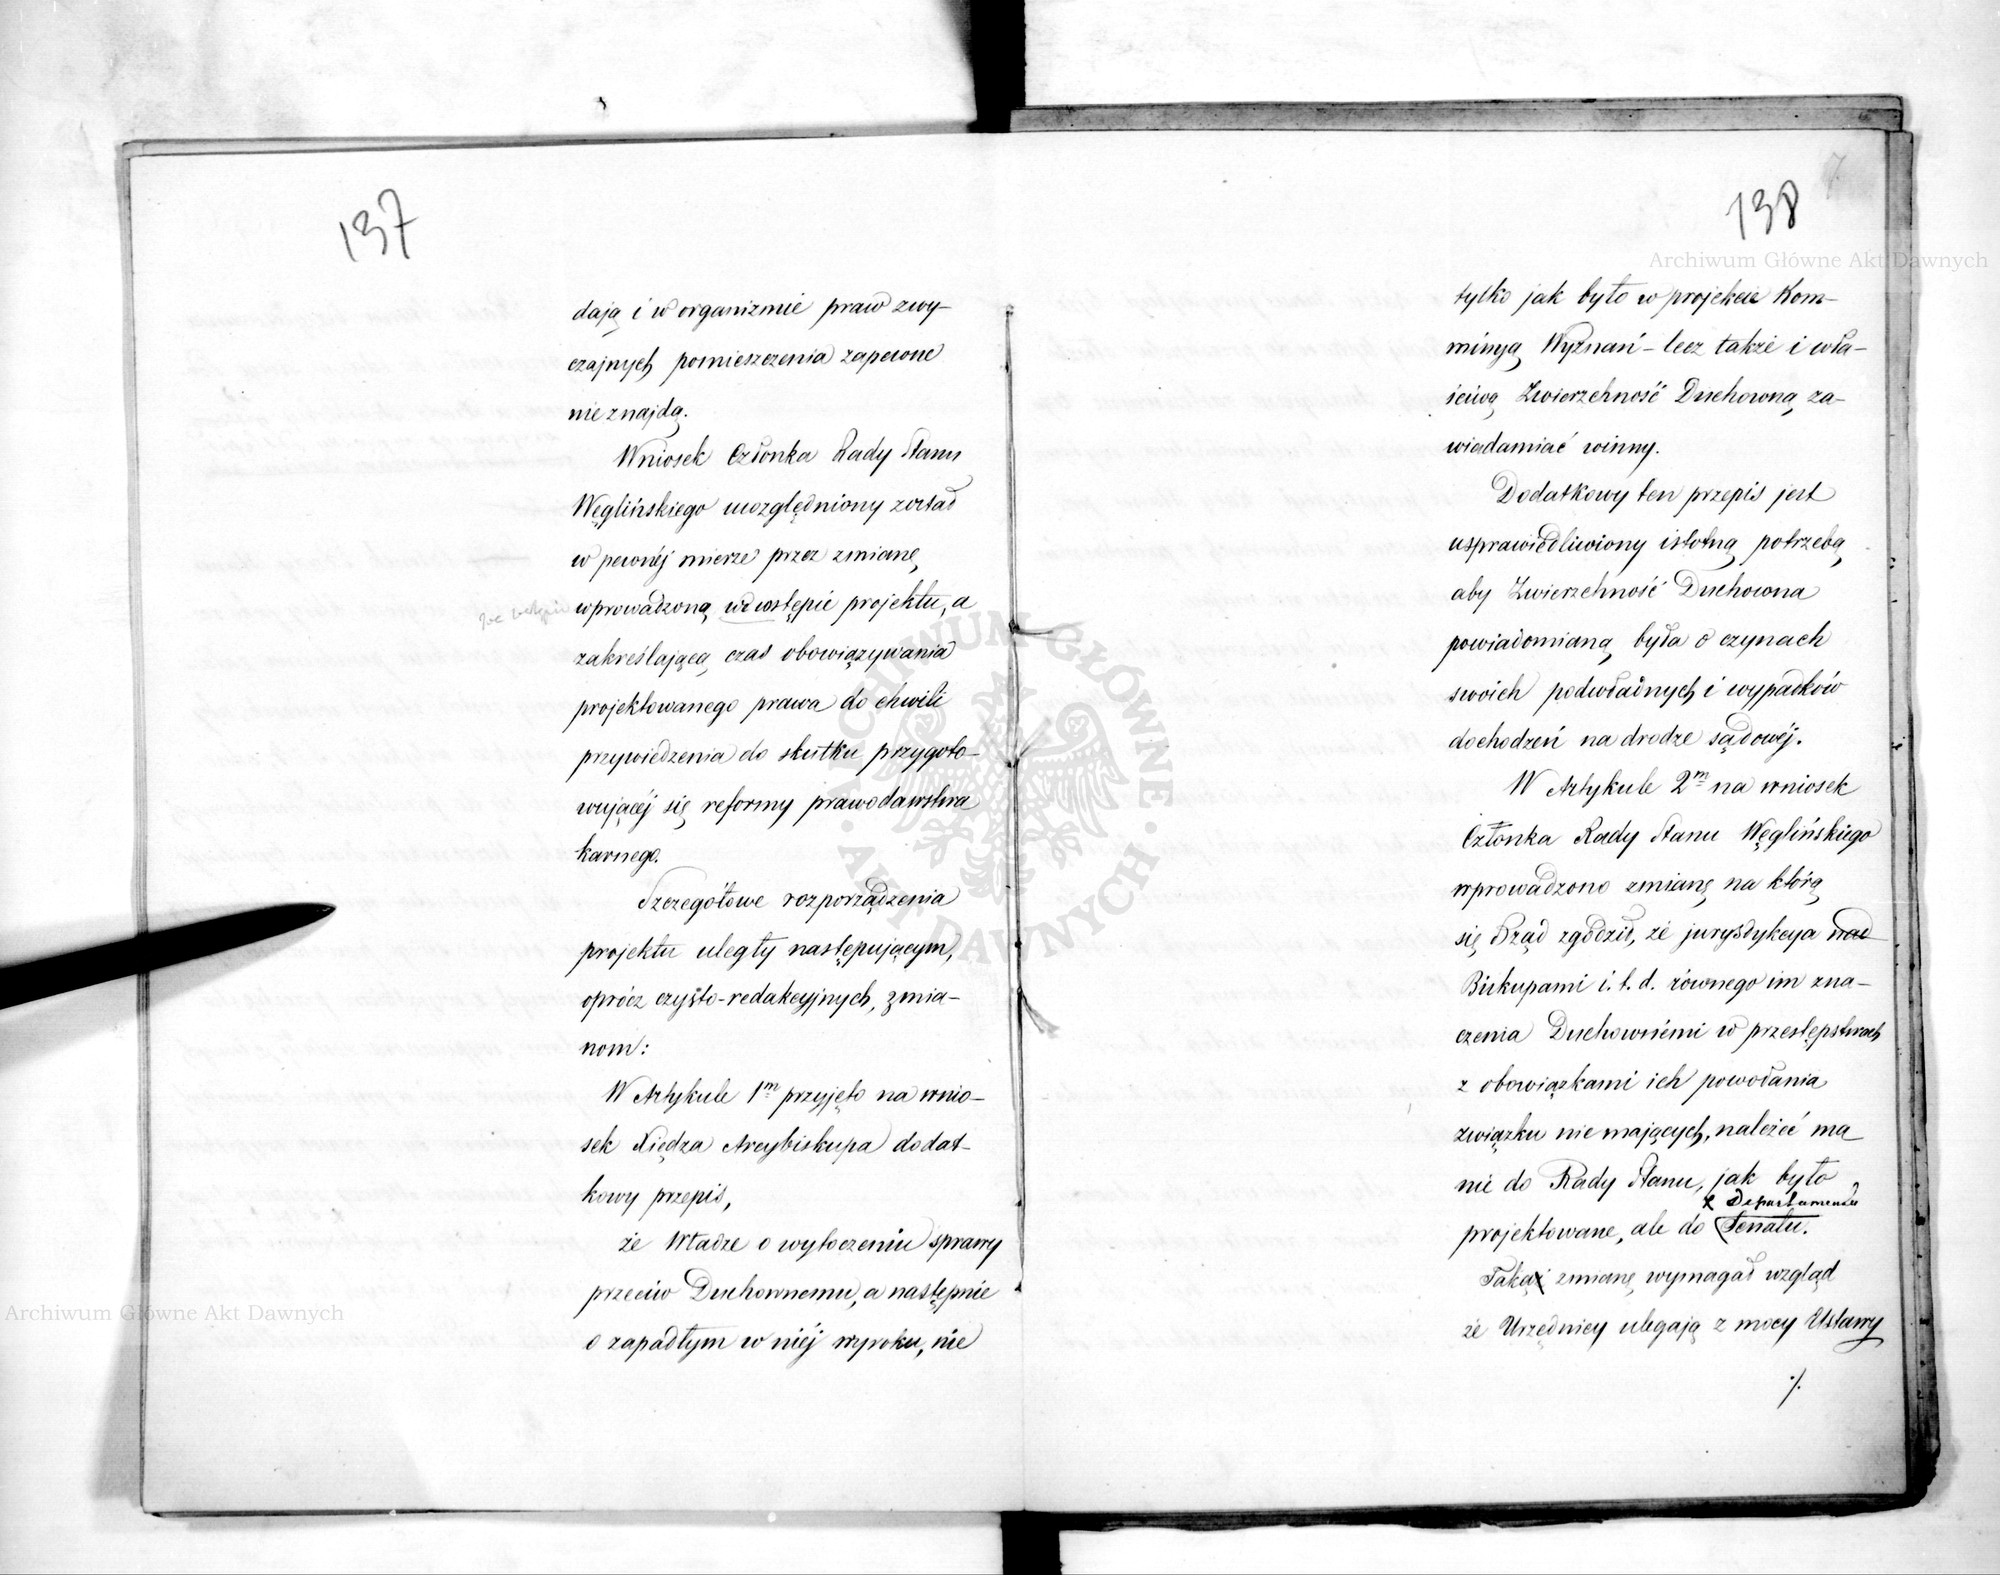 137
dają i w organizmie praw zwy-
czajnych pomieszczenia zapewne
nie znajdą.
Wniosek Członka Rady Stanu
Węglińskiego uwzględniony został
w pewnéj mierze przez zmianę
wprowadzoną we wstępie projektu, a
zakreślającą czas obowiązywania
projektowanego prawa do chwili
przywiedzenia do skutku przygoto-
wującéj się reformy prawodawstwa
karnego.
Szczegółowe rozporządzenia
projektu uległy następującym,
oprócz czysto-redakcyjnych, zmia-
nom:
W Artykule 1m przyjęto na wnio-
sek Xiędza Arcybiskupa dodat-
kowy przepis,
że Władze o wytoczeniu sprawy
przeciw Duchownemu, a następnie
o zapadłym w niéj wyroku, nie
138
7
tylko jak było w projekcie Kom-
missyą Wyznań - lecz także i wła-
ściwą Zwierzchność Duchowną za-
wiadamiać winny.
Dodatkowy ten przepis jest
usprawiedliwiony istotną potrzebą
aby Zwierzchność Duchowna
powiadomioną była o czynach
swoich podwładnych i wypadków
dochodzeń na drodze sądowéj.
W Artykule 2m na wniosek
Członka Rady Stanu Węglińskiego
wprowadzono zmianę na którą
się Rząd zgodził, że jurysdykcya nad
Biskupami i.t.d. równego im zna-
czenia Duchownémi w przestępstwach
z obowiązkami ich powołania
związku nie mających, należéć ma
nie do Rady Stanu, jak było
Departamentu
projektowane, ale do Senatu.
Taką zmianę wymagał wzgląd
że Urzędnicy ulegają z mocy Ustawy
./.
Archiwum Główne Akt Dawnych
Archiwum Główne Akt Dawnych
ARCHIWUM GŁÓWNE · AKT DAWNYCH ·